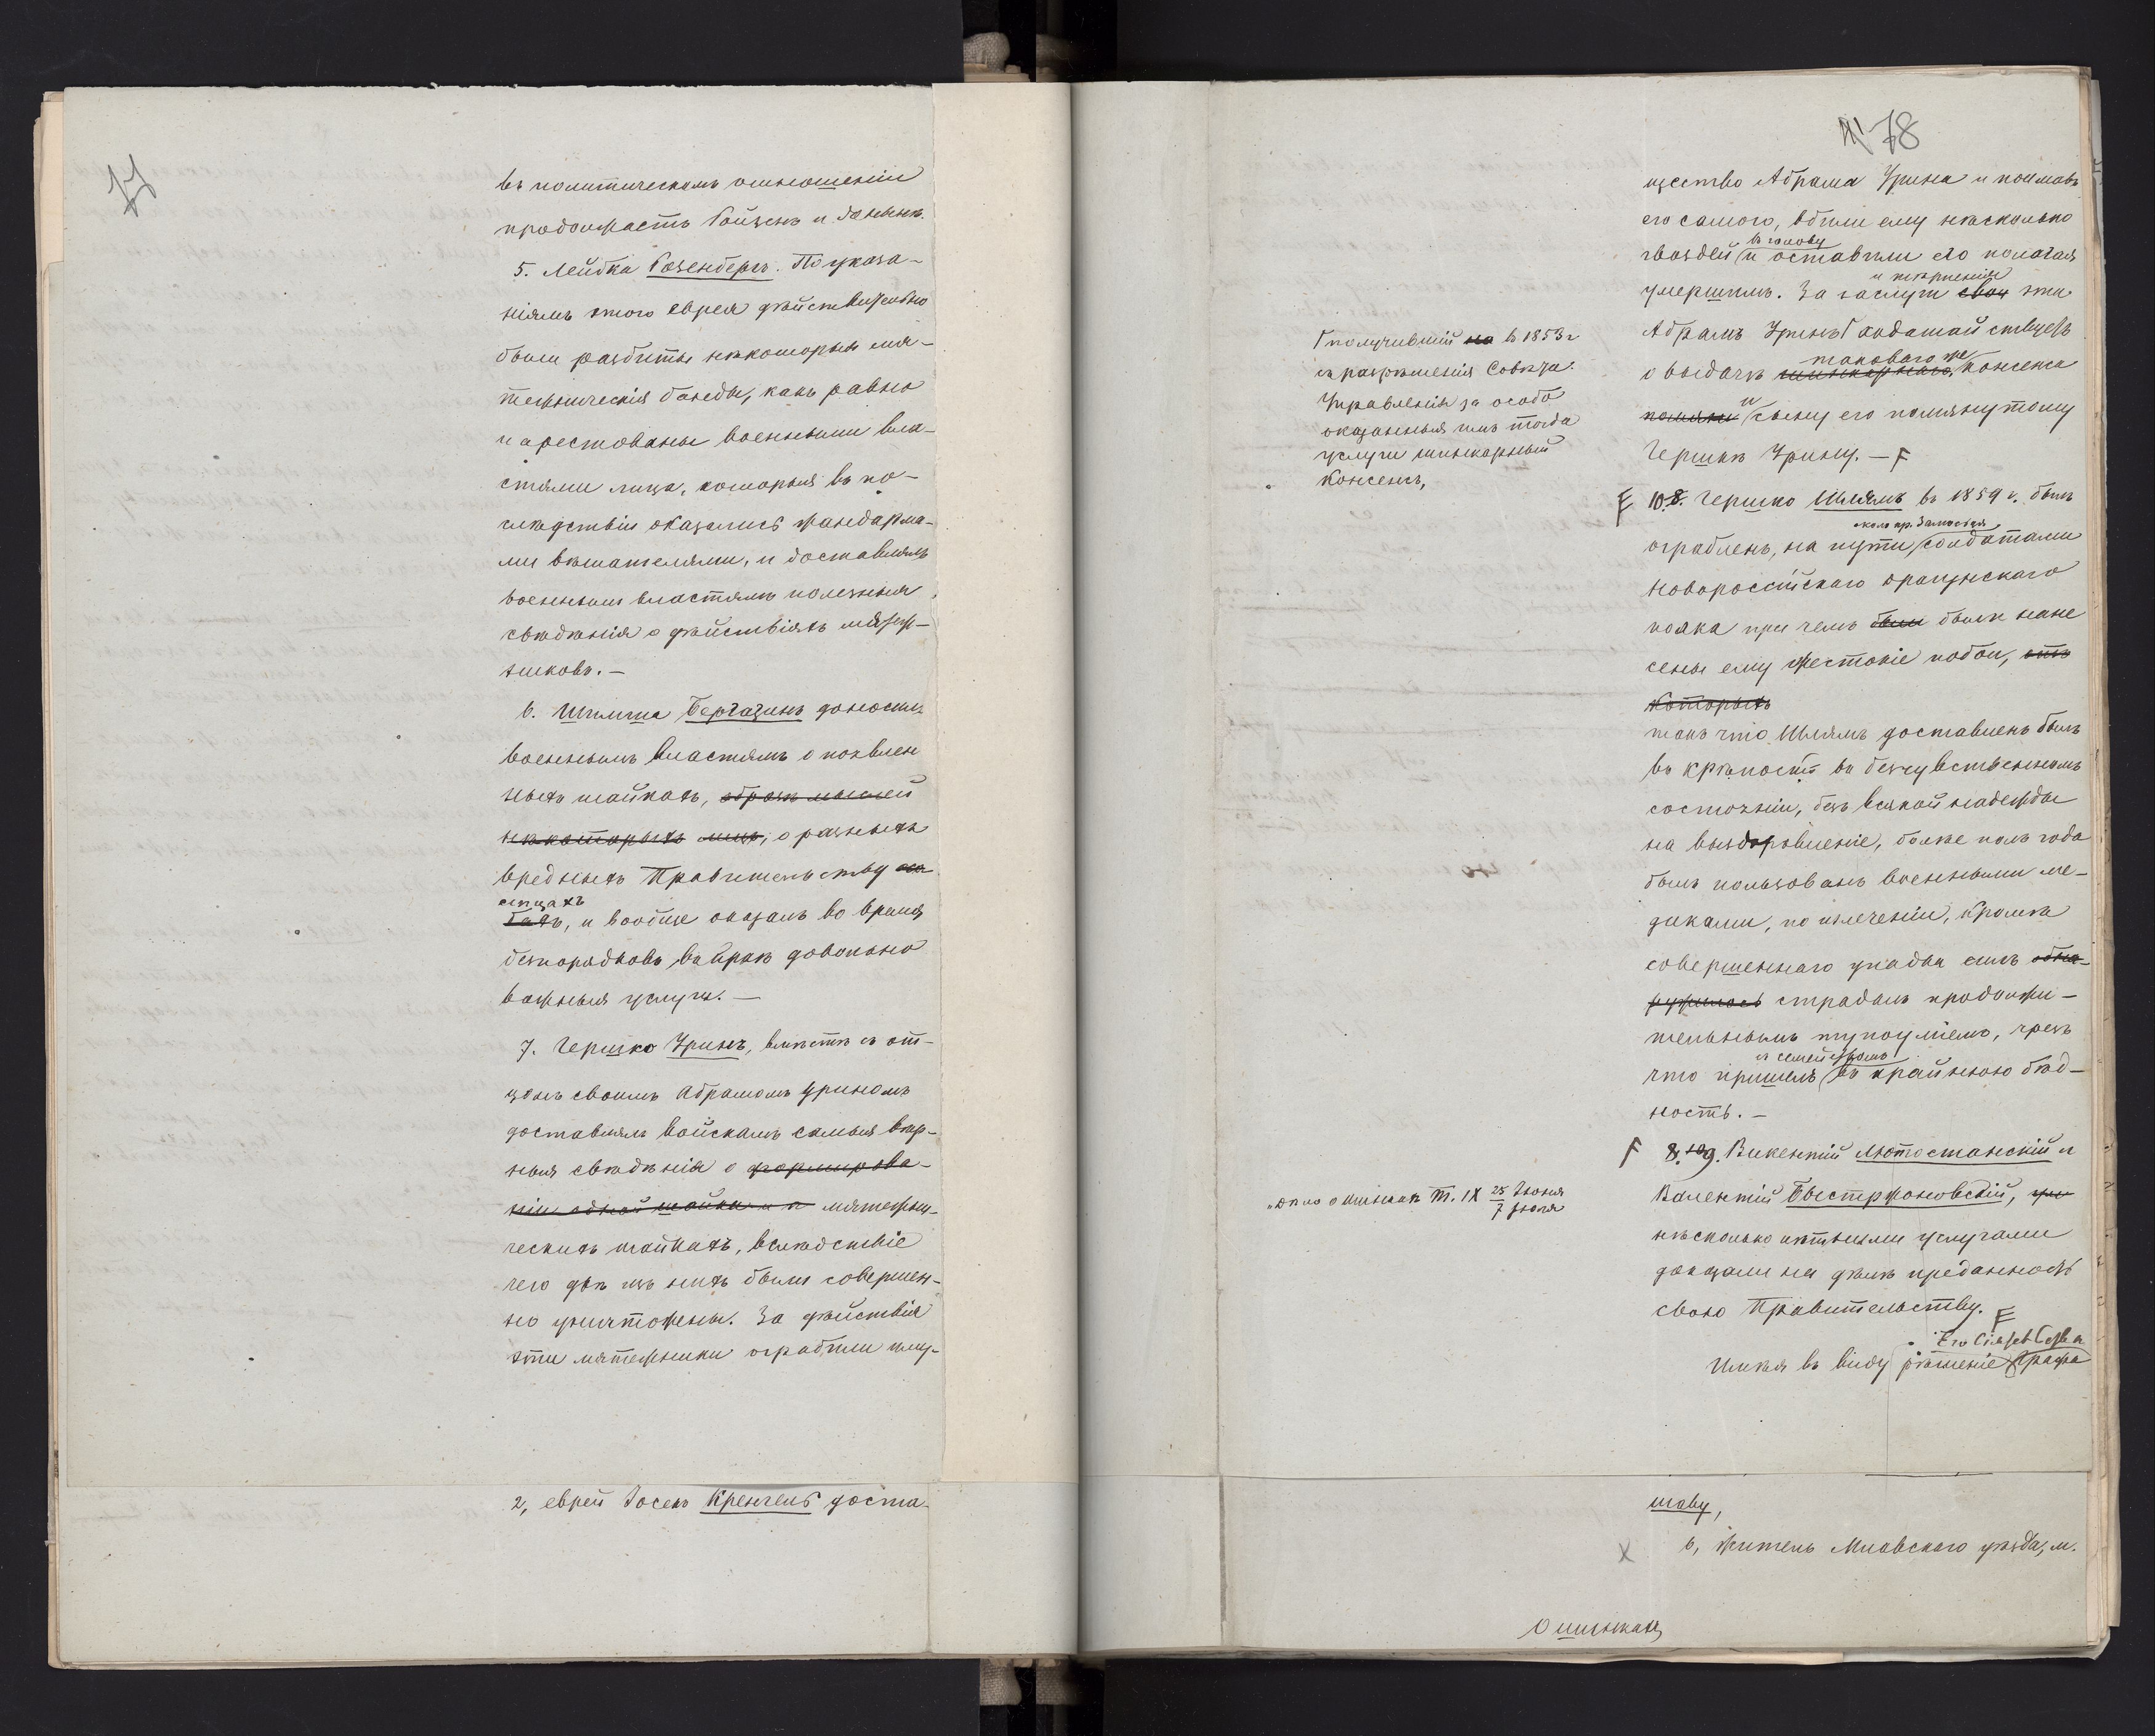 77
въ политическомъ отношеніи
продолжаетъ Гойзенъ и донынѣ.
5. Лейбка Розенбергъ. По указа-
ніямъ этого еврея дѣйствительно
были разбиты нѣкоторыя мя-
тежническія банды, какъ равно
и арестованы военными вла-
стями лица, которыя въ по-
слѣдствіи оказались жандарма-
ми вѣшателями, и доставлялъ
военнымъ властямъ полезныя
свѣдѣнія о дѣйствіяхъ мятеж-
никовъ. —
6. Шлиома Бергазинъ доносилъ
военнымъ властямъ о появлен
ныхъ шайкахъ, образѣ мыслей
нѣкоторыхъ лицъ, о разныхъ
вредныхъ Правительству
лицахъ
, и вообще оказалъ во время
безпорядковъ въ Краѣ довольно
важныя услуги. —
7. Гершко Гринъ, вмѣстѣ съ от-
цомъ своимъ Абрамомъ Гриномъ
доставлялъ войскамъ самыя вѣр-
ныя свѣдѣнія о формирова-
ніи одной шайки и п мятежни-
ческихъ шайкахъ, вслѣдствіе
чего двѣ изъ нихъ были совершен-
но уничтожены. За дѣйствія
эти мятежники ограбили иму-
2, еврей Іосекъ Кренгель доста-
78
щество Абрама Грина и поймавъ
его самого, вбили ему нѣсколько
въ голову
гвоздей и оставили его полагая
и терпѣнія
умершимъ. За заслуги свои эти
Абрамъ Гринъ ходатайствуетъ
таковаго же
о выдачѣ шинкарнаго, консенса
и
помяну сыну его помянутому
Гершкѣ Грину. —
получившій на въ 1853 г
съ разрѣшенія Совѣта
Управленія за особо
оказанныя имъ тогда
услуги шинкарный
консенсъ,
10. 8. Гершко Шлямъ въ 1859 г. былъ
около кр. Замостья
ограбленъ, на пути солдатами
Новороссійскаго драгунскаго
полка при чемъ были были нане
сены ему жестокіе побои, отъ
которыхъ
такъ что Шлямъ доставленъ былъ
въ крѣпость въ безчувственномъ
состояніи, безъ всякой надежды
на выздоровленіе, болѣе полъ года
былъ пользованъ военными ме-
диками, по излеченіи, кромѣ
совершеннаго упадка силъ обна-
ружилось страдалъ продолжи-
тельнымъ тупоуміемъ, чрезъ
съ семействомъ
что пришелъ въ крайнюю бѣд-
ность. —
8. 10 9. Викентій Лютостанскій и
Валентій Быстржоновскій,
нѣсколько услугами
доказали на дѣлѣ преданность
свою Правительству.
дѣло о шинкахъ Т. IX 25 Іюня
7 Іюля
Его Сіятельства
Имѣя въ виду рѣшеніе Графа
шаву,
6, Житель Млавскаго уѣзда, м.
О шинкахъ